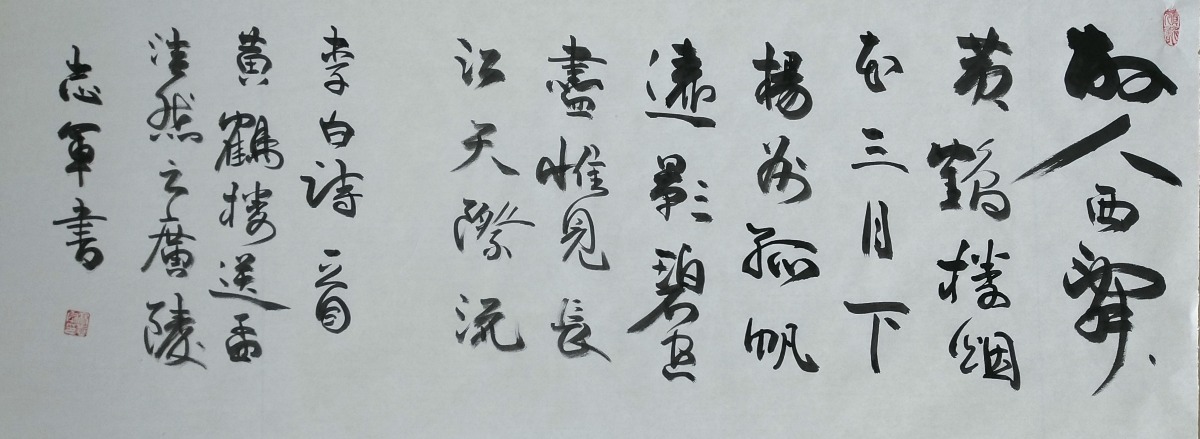 故人西辭
黄鶴樓烟
花三月下
揚州孤帆
遠影碧空
盡惟見長
江天際流
李白詩一首
黄鶴樓送孟
浩然之廣陵
志軍書